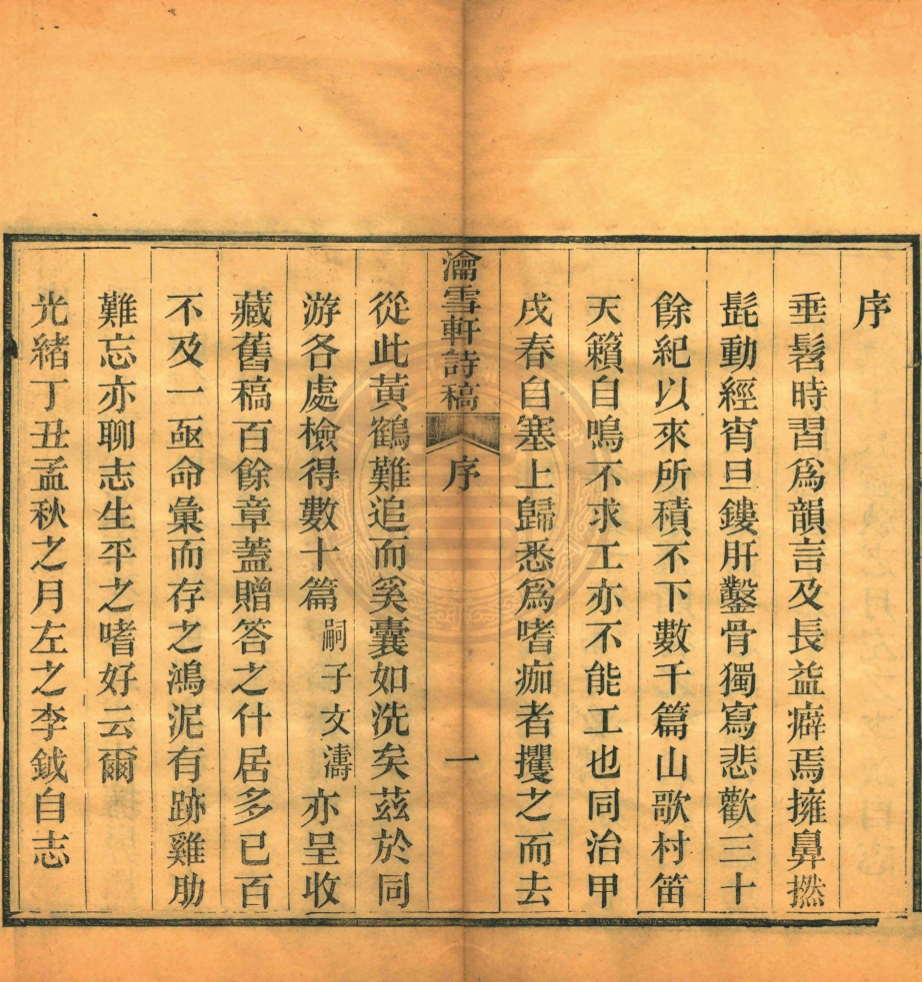 序
垂髫時習爲韻言及長益癖焉擁鼻撚
髭動經宵旦鏤肝鑿骨獨寫悲歡三十
餘紀以來所積不下數千篇山歌村笛
天籟自鳴不求工亦不能工也同治甲
戌春自塞上歸悉爲嗜痂者攫之而去
瀹雪軒詩稿 序 一
從此黃鶴難追而奚囊如洗矣茲於同
游各處檢得數十篇嗣子文濤亦呈收
藏舊稿百餘章蓋贈答之什居多已百
不及一亟命彙而存之鴻泥有跡雞肋
難忘亦聊志生平之嗜好云爾
光緒丁丑孟秋之月左之李鉞自志